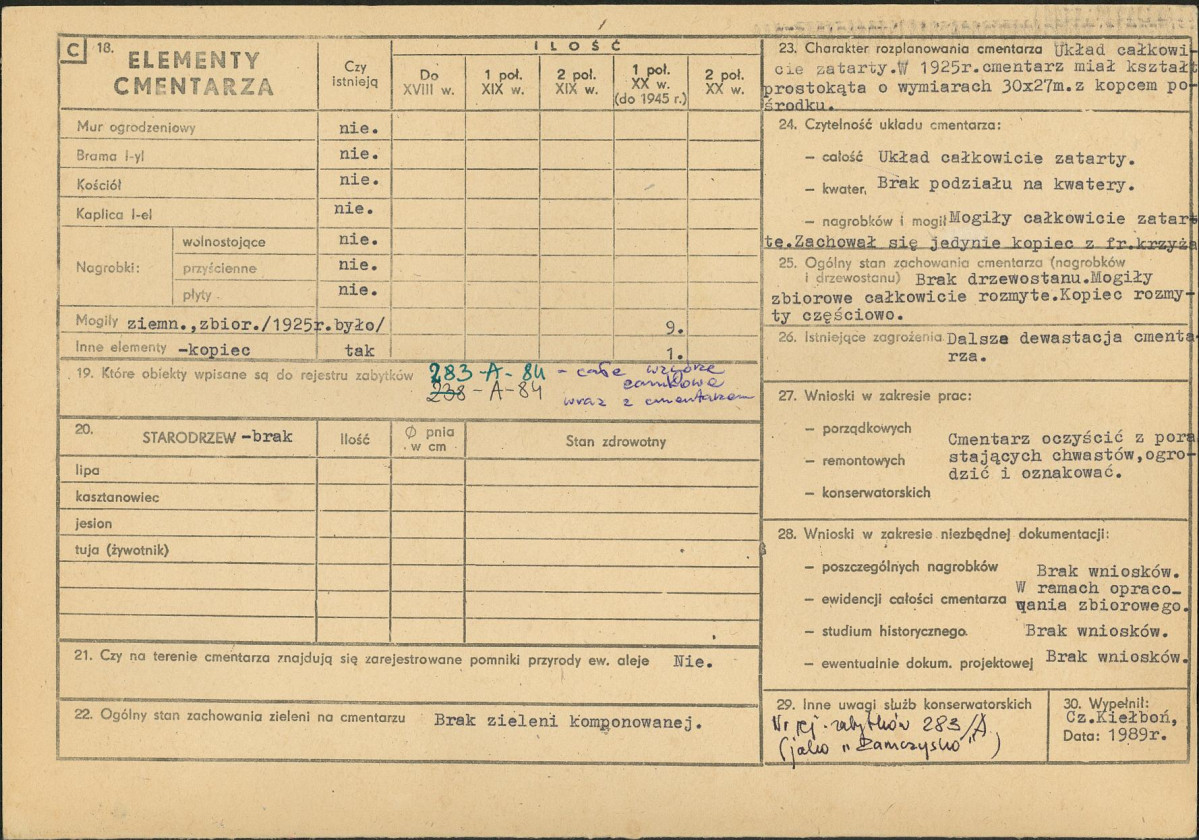 C 18. ELEMENTY
CMENTARZA
Czy
istnieją
ILOŚĆ
Do
XVIII w.
1 poł.
XIX w.
2 poł.
XIX w.
1 poł.
XX w.
(do 1945 r.)
2 poł.
XX w.
Mur ogrodzeniowy nie.
Brama l-yl nie.
Kościół nie.
Kaplica l-el nie.
Nagrobki:
wolnostojące nie.
przyścienne nie.
płyty nie.
Mogiły ziemn.,zbior./1925r.było/ 9.
Inne elementy -kopiec tak 1.
19. Które obiekty wpisane są do rejestru zabytków 283-A-84 - całe wzgórze
238-A-84 zamkowe
wraz z cmentarzem
20. STARODRZEW -brak
Ilość
Ø pnia
w cm
Stan zdrowotny
lipa
kasztanowiec
jesion
tuja (żywotnik)
21. Czy na terenie cmentarza znajdują się zarejestrowane pomniki przyrody ew. aleje Nie.
22. Ogólny stan zachowania zieleni na cmentarzu Brak zieleni komponowanej.
23. Charakter rozplanowania cmentarza Układ całkowi-
cie zatarty.W 1925r.cmentarz miał kształt
prostokąta o wymiarach 30x27m.z kopcem po-
środku.
24. Czytelność układu cmentarza:
– całość Układ całkowicie zatarty.
– kwater, Brak podziału na kwatery.
– nagrobków i mogił Mogiły całkowicie zatar-
te.Zachował się jedynie kopiec z fr.krzyża
25. Ogólny stan zachowania cmentarza (nagrobków
i drzewostanu) Brak drzewostanu.Mogiły
zbiorowe całkowicie rozmyte.Kopiec rozmy-
ty częściowo.
26. Istniejące zagrożenia Dalsza dewastacja cmenta-
rza.
27. Wnioski w zakresie prac:
– porządkowych
– remontowych
– konserwatorskich
Cmentarz oczyścić z pora
stających chwastów,ogro-
dzić i oznakować.
28. Wnioski w zakresie niezbędnej dokumentacji:
– poszczególnych nagrobków Brak wniosków.
– ewidencji całości cmentarza W ramach opraco-
wania zbiorowego.
– studium historycznego. Brak wniosków.
– ewentualnie dokum. projektowej Brak wniosków.
29. Inne uwagi służb konserwatorskich
Nr rej. zabytków 283/A
(jako „Zamczysko")
30. Wypełnił:
Cz.Kiełboń,
Data: 1989r.